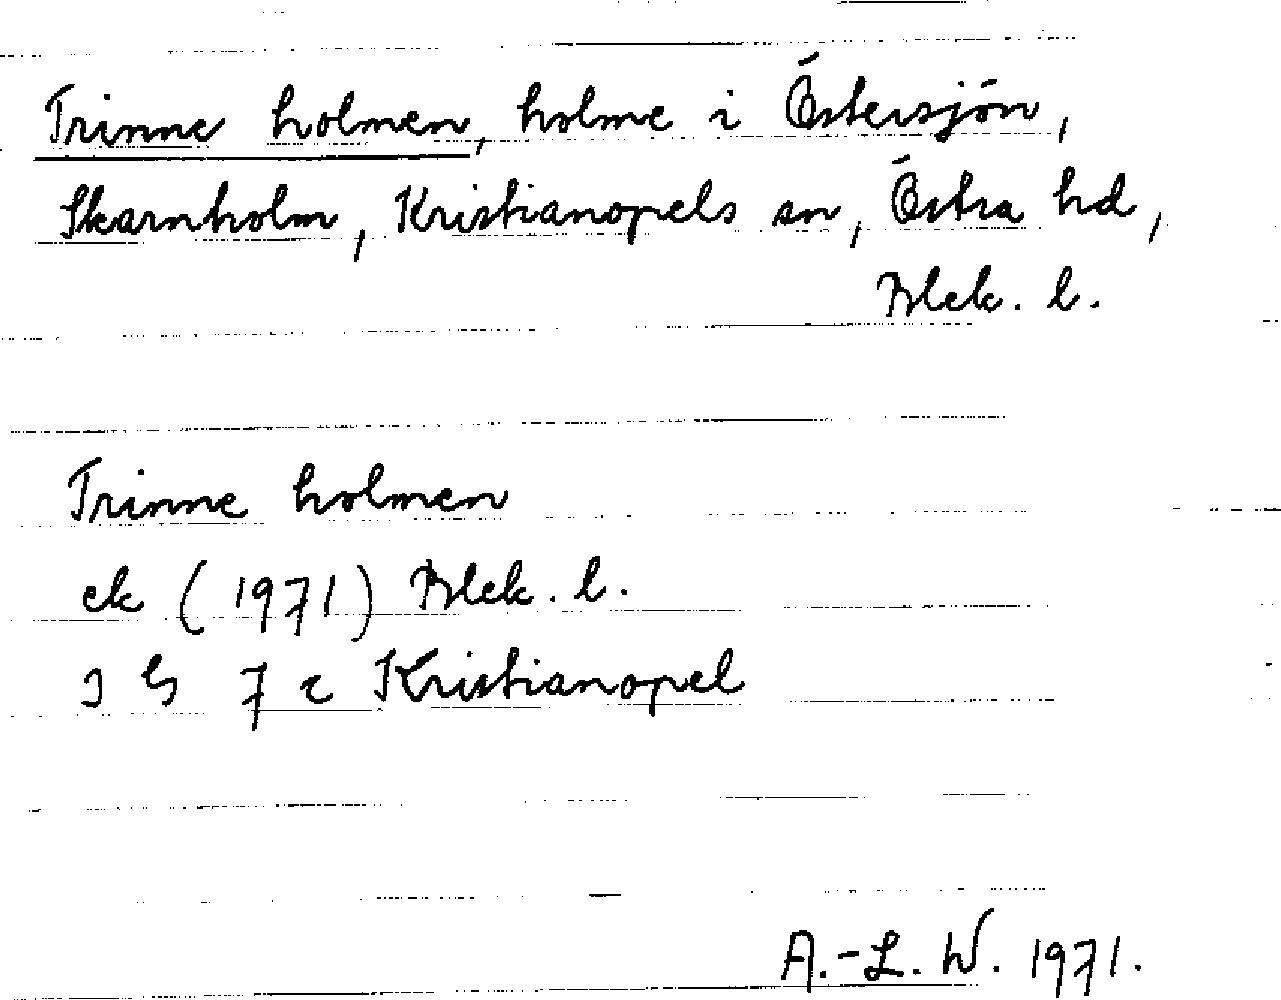 Trinne holmen, holme i Östersjön,
Skarnholm, Kristianopels sn, Östra hd,
Blek. l.
Trinne holmen
ek (1971) Blek. l.
3 G 7 c Kristianopel
A.-L. W. 1971.